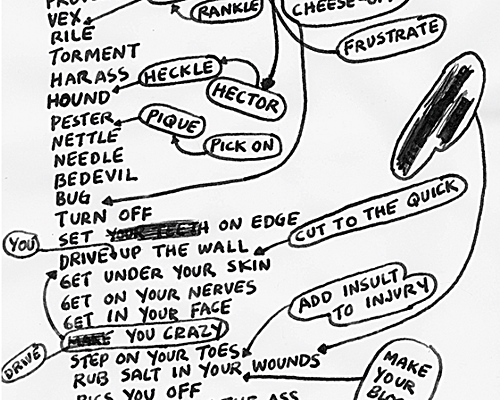 RANKLE
CHEESE-OFF
VEX
RILE
FRUSTRATE
TORMENT
HARASS
HECKLE
HOUND
HECTOR
PESTER
PIQUE
NETTLE
PICK ON
NEEDLE
BEDEVIL
BUG
TURN OFF
CUT TO THE QUICK
SET YOUR TEETH ON EDGE
YOU
DRIVE UP THE WALL
GET UNDER YOUR SKIN
GET ON YOUR NERVES
ADD INSULT
TO INJURY
GET IN YOUR FACE
MAKE YOU CRAZY
DRIVE
STEP ON YOUR TOES
RUB SALT IN YOUR WOUNDS
MAKE
YOUR
YOU OFF
ASS